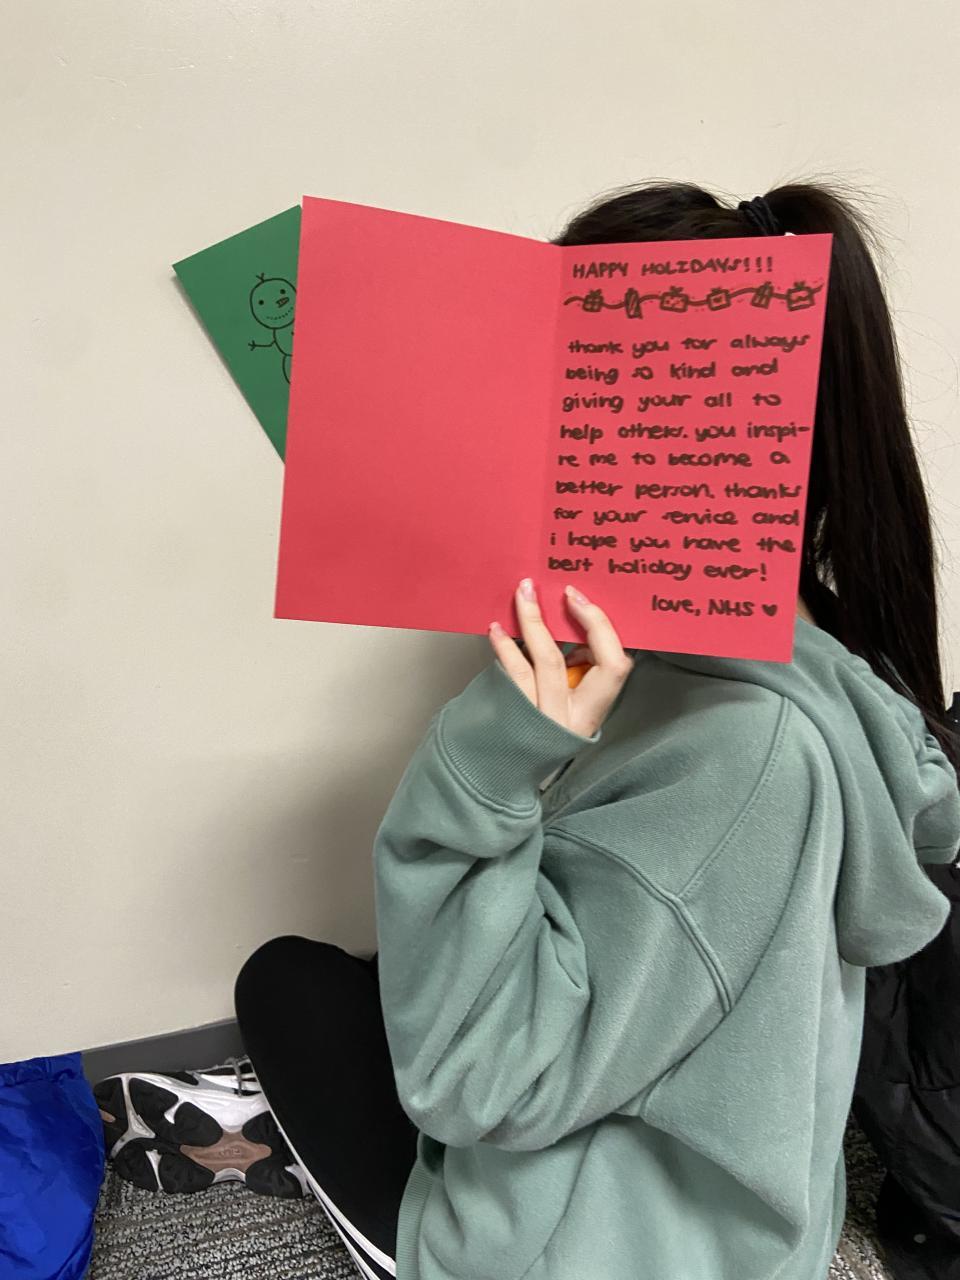 HAPPY HOLIDAYS!!!
thank you for always
being so kind and
giving your all to
help others. you inspi-
re me to become a
better person. thanks
for your service and
i hope you have the
best holiday ever!
love, NHS ♥